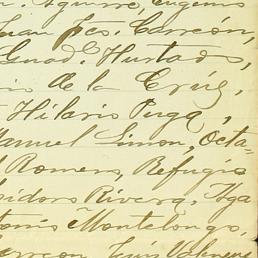 Aguirre, Eugenio
Juan Jcs. Carreón,
Guad. Hurtado,
de la Cruz,
Hilario Puga,
Manuel Simon, Octa-
Romero, Refugio
Isidoro Rivera, Aga
Montelongo,
Carreon, Luis